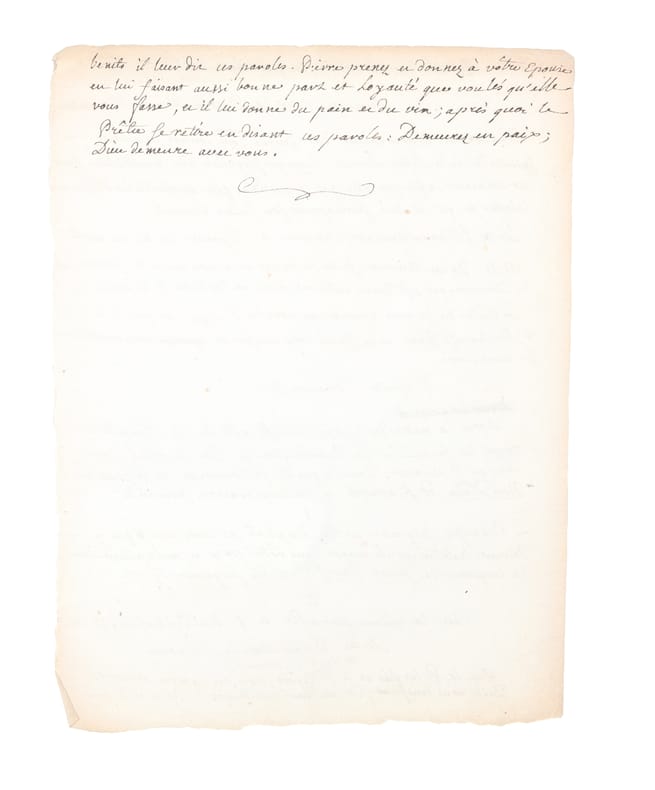 benits il leur dit ces paroles. Pierre prenez et donnez à vôtre Epouse
en lui faisant aussi bonne part et Loyauté que voulés qu'elle
vous fasse, et il lui donne du pain et du vin; après quoi le
Prêtre se retire en disant ces paroles: Demeurez en paix;
Dieu demeure avec vous.